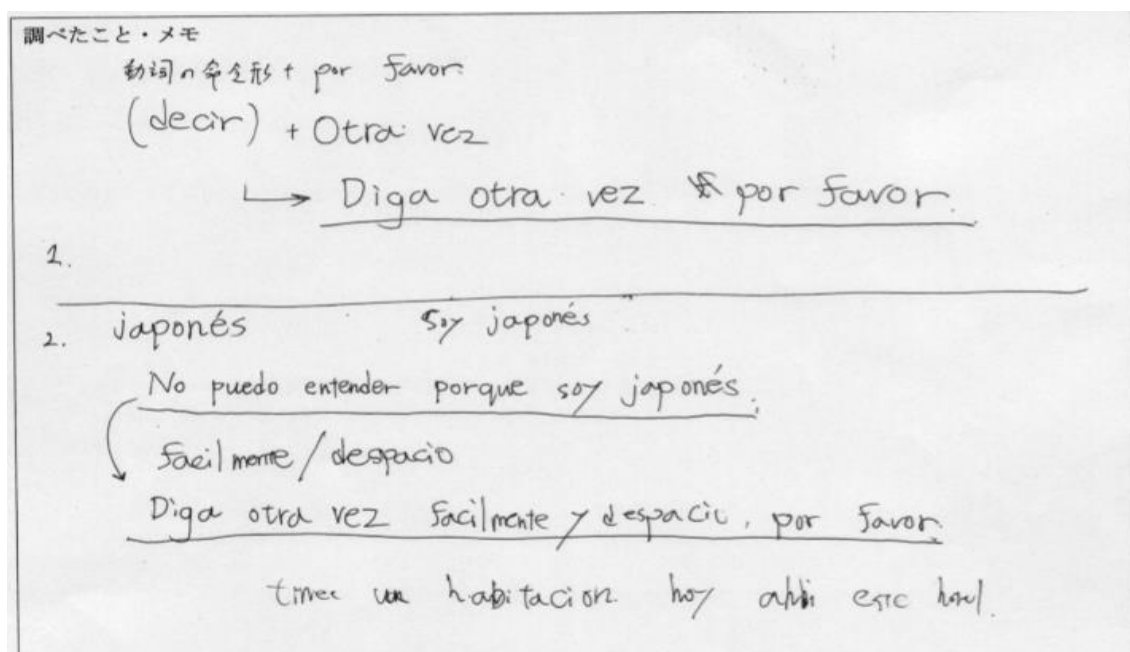 調べたこと・メモ
動詞の命令形 + por favor.
(decir) + Otra vez
→ Diga otra vez por favor.
1.
2. japonés soy japonés
No puedo entender porque soy japonés.
facilmente / despacio
Diga otra vez facilmente y despacio, por favor.
habitacion hoy